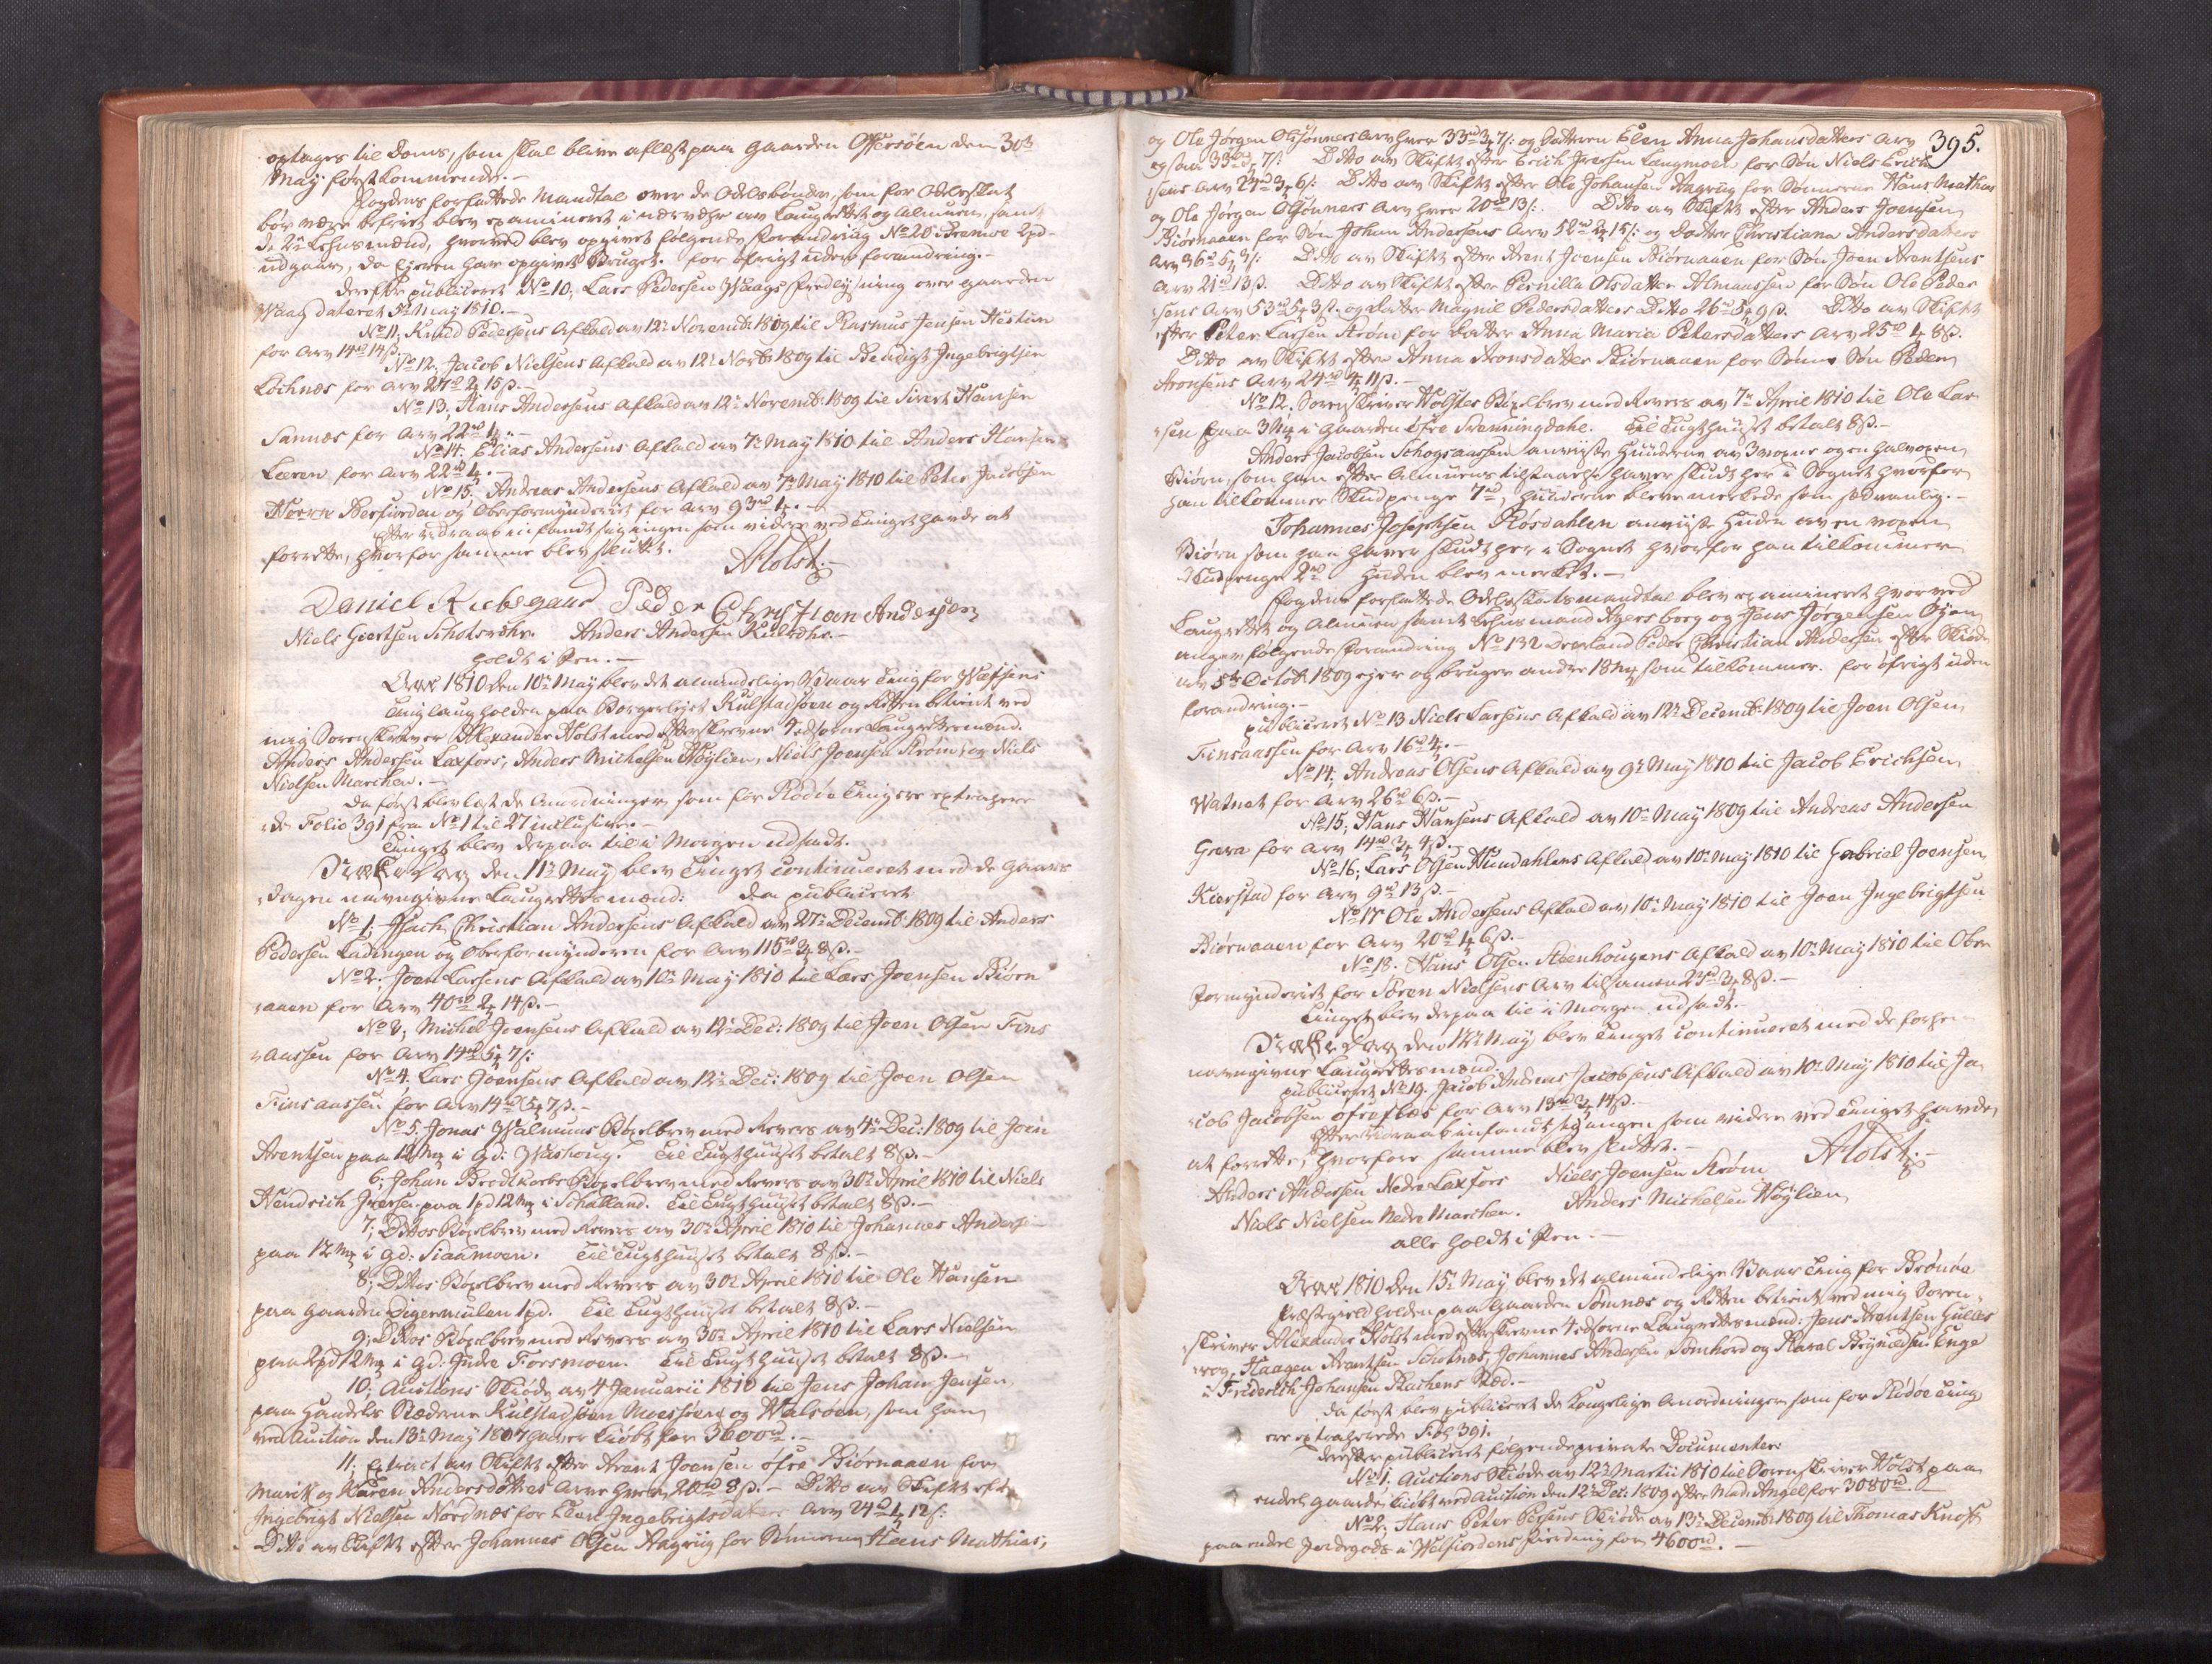 optages til Doms, som skal blive aflæst paa Gaarden Offersøen den 30te
May førstkommende. –
Fogdens forfattede Mandtal over de Odelsbønder, som for Odelsskat
bør være befriet blev examineret i nærværelse av Laugrettet og Almuen, samt
de 2de Lehnsmænd, hvorved blev opgivet følgende Forandring No 20 Bremoe 2pd
udgaar, da Ejeren har opgivet Bruget. for øfrigt uden forandring. –
Derefter publiceret No 10; Lars Pedersen Waags Fredlysning over Gaarden
Waag dateret 5te May 1810. –
No 11; Knud Pedersens Afkald av 12te Novemb: 1809 til Rasmus Jensen Hestun
for Arv 14rd 14ß. –
No 12; Jacob Nielsens Afkald av 12te Novb: 1809 til Bendigt Ingebrigtsen
Lochnæs for Arv 27rd 2 15ß. –
No 13; Hans Andersens Afkald av 12te Novemb: 1809 til Sivert Hansen
Sannæs for Arv 22rd 1. –
No 14. Elias Andersens Afkald av 7de May 1810 til Anders Hansen
Leeren for Arv 22rd 4. –
No 15. Andreas Andersens Afkald av 7de May 1810 til Peter Jacobsen
og Oberformynderiet for Arv 93rd 1. –
Efter Udraab infandt sig ingen som videre ved Tinget havde at
forrette, hvorfor samme blev sluttet. AHolst. –
Daniel Peder Christian Andersen
Niels Giertsen Anders Andersen
holdt i Pen. –
Aar 1810 den 10de May blev det almindelige Vaar Ting for Wefsens
Tinglaug holden paa Borgerlejet Kulstadsøen og Retten betient ved
mig Sorenskriver Alexander Holst med efterskrevne 4 edsorne Laugrettesmænd.
Anders Andersen Laxfors, Anders Michelsen Høylien, Niels Joensen Strøm, og Niels
Nielsen Marchen. –
Da først blev læst de Anordninger som for Rødøe Ting ere extrahere
:de Folio 391 fra No 1 til 27 inclusive. –
Tinget blev derpaa til i Morgen udsadt.
Næste Dag den 11te May blev Tinget continueret med de Gaars
:dagen navngivne Laugrettesmænd: Da publiceret
No 1; Isach Christian Andersens Afkald av 27de Decemb: 1809 til Anders
Pedersen Ladingen og Oberformynderen for Arv 115rd 3 8ß. –
No 2; Joen Larsens Afkald av 10de May 1810 til Lars Joensen Biørn
:aaen for Arv 40rd 2 14ß. –
No 3; Michel Joensens Afkald av 12te Dec: 1809 til Joen Olsen Fins
:aassen for Arv 14rd 5 7ß:
No 4. Lars Joensens Afkald av 12te Dec: 1809 til Joen Olsen
Finsaassen for Arv 14rd 5 7ß. –
No 5; Jonas Walmuns Bøxelbrev med Revers av 4de Dec: 1809 til Joen
Arentsen paa 12 i gd: Washoug. Til Tugthuuset betalt 8ß. –
6; Johan Brodtkorbs Bøxelbrev med Revers av 30te April 1810 til Niels
Hendrich Iversen paa 1pd 12 i Schalland. Til Tugthuuset betalt 8ß. –
7; Dittos Bøxelbrev med Revers av 30te April 1810 til Johannes Andersen
paa 12 i gd: Siaamoen. Til Tugthuuset betalt 8ß. –
8; Dittos Bøxelbrev med Revers av 30te April 1810 til Ole Hansen
paa Gaarden Digermulen 1pd. Til Tugthuuset betalt 8ß. –
9; Dittos Bøxelbrev med Revers av 30te April 1810 til Lars Nielsen
paa 2pd 12 i gd: Indre Forsmoen. Til Tugthuuset betalt 8ß. –
10; Auctions Skiøde av 4 Januarii 1810 til Jens Johan Jensen
paa Handels Stæderne Kulstadsøen Moessøen og Walsøen, som han
ved Auction den 13de May 1807 haver kiøbt for 3600rd. –
11; Extract av Skifte efter Arent Joensen øfre Biørnaaen for
Marit og Karen Andersdøttres Arv hver 20rd 8ß. – Ditto av Skifte efter
Ingebrigt Nielsen Nordnæs for Elen Ingebrigtsdatters Arv 24rd 1 12ß:
Ditto av Skifte efter Johannes Olsen Aagrüg for Sønnerne Hans Mathias,
395.
og Ole Jørgen Olsønners Arv hver 33rd 3 7ß: og Datteren Elen Anna Johansdatters Arv
og saa 33rd 7ß: Ditto av Skifte efter Erich Iversen Langmoen for Søn Niels Erich
:sens Arv 24rd 3 6ß: Ditto av Skifte efter Ole Johansen Aagrüg for Sønnerne Hans Mathias
og Ole Jørgen Olsønners Arv hver 20rd 13ß: Ditto av Skifte efter Anders Joensen
Biørnaaen for Søn Johan Andersens Arv 52rd 2 15ß: og Datter Christiana Andersdatters
Arv 36rd 5 9ß: Ditto av Skifte efter Arent Joensen Biørnaaen for Søn Joen Arentsens
Arv 21rd 13ß. Ditto av Skifte efter Pernilla Olsdatter Almaassen for Søn Ole Peder
:sens Arv 53rd 5 3ß. og Datter Magnil Pedersdatters Ditto 26rd 5 9ß. Ditto av Skifte
efter Peter Larsen Strøm for Datter Anna Maria Petersdatters Arv 25rd 1 8ß.
Ditto av Skifte efter Anna Aronsdatter Biørnaaen for Sønne Søn Peder
Aronsens Arv 24rd 4 11ß. –
No 12. Sorenskriver Holstes Bøxelbrev med Revers av 7de April 1810 til Ole Lar
:sen paa 3 i Gaarden Øfre Svenningdahl. Til Tugthuuset betalt 8ß. –
Anders Jacobsen Schogsaassen anviiste Huuderne av 3 voxne og en halvoxen
Biørn, som han efter Almuens tilstaaelse haver skudt her i Sognet hvorfor
han tilkommer Skudpenge 7rd, Huuderne bleve merkede som sædvanlig. –
Johannes Josephsen Røsdahlen anviiste Huden av en voxen
Biørn som han haver skudt her i Sognet hvorfor han tilkommer
Skudpenge 2rd Huden blev merket. –
Fogdens forfattede Odelsskatsmandtal blev examineret hvorved
Laugrettet og Almuen samt Lehnsmand Agersborg og Jens Jørgensen Øyen
angav følgende Forandring No 132 Peder Christian Andersen efter Skiøde
av 5te Octob: 1809 ejer og bruger andre 18 som tilkommer. for øfrigt uden
forandring. –
publiceret No 13 Niels Larsens Afkald av 12te Decemb: 1809 til Joen Olsen
Finsaassen for Arv 16rd 4. –
No 14; Andreas Olsens Afkald av 9de May 1810 til Jacob Erichsen
Watnet for Arv 26rd 6ß. –
No 15; Hans Hansens Afkald av 10de May 1809 til Andreas Andersen
Giera for Arv 14rd 3 4ß. –
No 16; Lars Olsen Hundahlens Afkald av 10de May 1810 til Gabriel Joensen
Kierstad for Arv 9rd 13ß. –
No 17 Ole Andersens Afkald av 10de May 1810 til Joen Ingebrigtsen
Biørnaaen for Arv 20rd 1 6ß.
No 18. Hans Olsen Steenhougens Afkald av 10de May 1810 til Ober
formynderiet for Søren Nielsens Arv tilsamen 23rd 3 8ß. –
Tinget blev derpaa til i Morgen udsadt. –
Næste Dag den 12te May blev Tinget continueret med de forhen
navngivne Laugrettesmænd.
publiceret No 19. Jacob Andreas Jacobsens Afkald av 10de May 1810 til Ja
:cob Jacobsen for Arv 13rd 2 14ß. –
Efter Udraab infandt sig ingen som videre ved Tinget havde
at forrette, hvorfore samme blev sluttet. – AHolst. –
Anders Andersen Nedre Laxfors Niels Joensen Strøm
Niels Nielsen Nedre Marchen. Anders Michelsen Høylien
alle holdt i Pen. –
Aar 1810 den 15de May blev det almindelige Vaar Ting for Brønøe
Præstegield holden paa Gaarden Sømnæs og Retten betient ved mig Soren
:skriver Alexander Holst med efterskrevne 4 edsorne Laugrettesmænd: Jens Arentsen
Haagen Arentsen Johannes Andersen Sømhovd og Enge
i Friderich Johansen Sted. –
Da først blev publiceret de Kongelige Anordninger som for Rødøe Ting
ere extraherede Fol: 391.
Derefter publiceret følgende private Documenter:
No 1. Auctions Skiøde av 12te Martii 1810 til Sorenskriver Holst paa
endel Gaarde kiøbt ved Auction den 12te Dec: 1809 efter Mad: Angel for 3080rd. –
No 2; Hans Peter Skiøde av 13de Decemb: 1809 til Thomas Knoff
paa endel Jordegods i Welfiordens Fierding for 4600rd. –